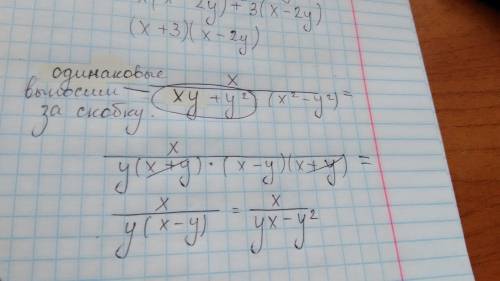 x(x-2y)+3(x-2y)
(x+3)(x-2y)
одинаковые
выносим
за скобку.
x / (xy+y²)(x²-y²) =
x / y(x+y)·(x-y)(x+y) =
x / y(x-y) = x / yx-y²